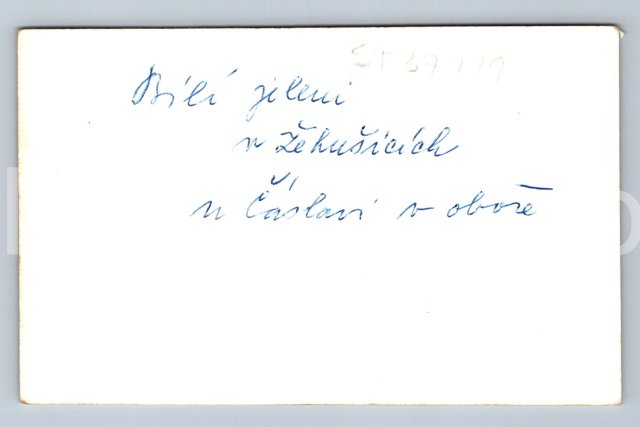 ST 37 / 19
Bílí jeleni
v Žehušicích
u Čáslavi v oboře